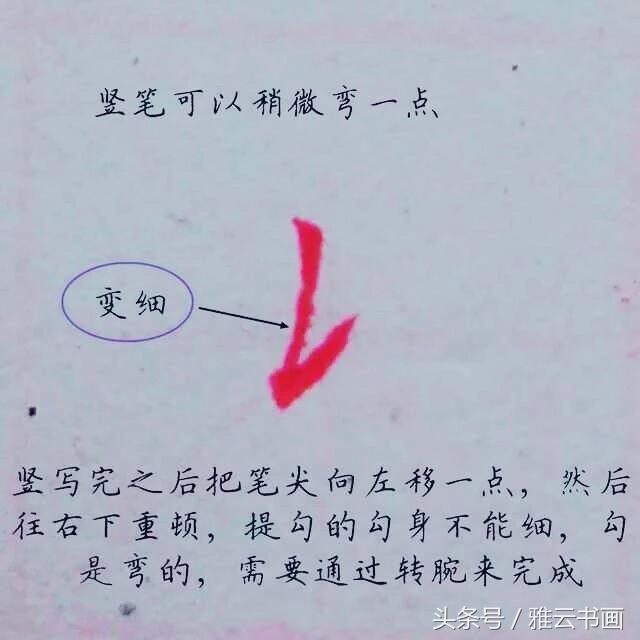 竖笔可以稍微弯一点
变细
竖写完之后把笔尖向左移一点，然后
往右下重顿，提勾的勾身不能细，勾
是弯的，需要通过转腕来完成
头条号 / 雅云书画